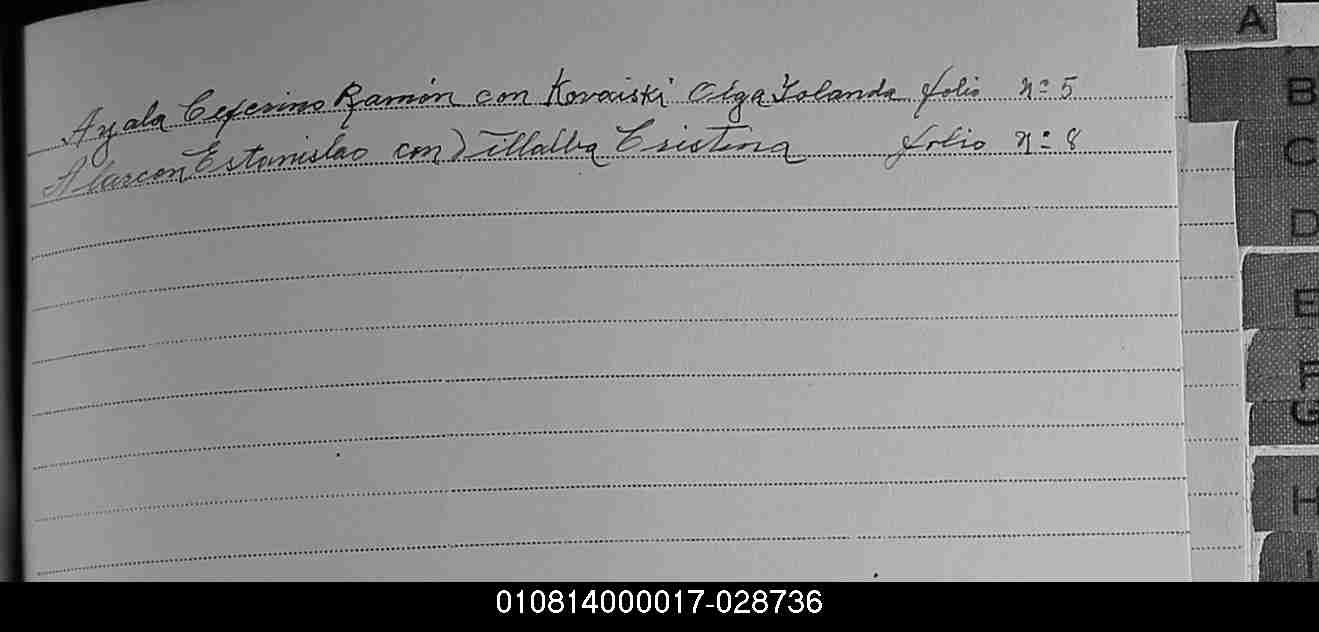 Ayala Ceferino Ramón con Kovaiski Olga Yolanda folio nº 5
Alarcon Estanislao con Villalba Cristina folio nº 8
A
B
C
D
E
F
G
H
I
010814000017-028736